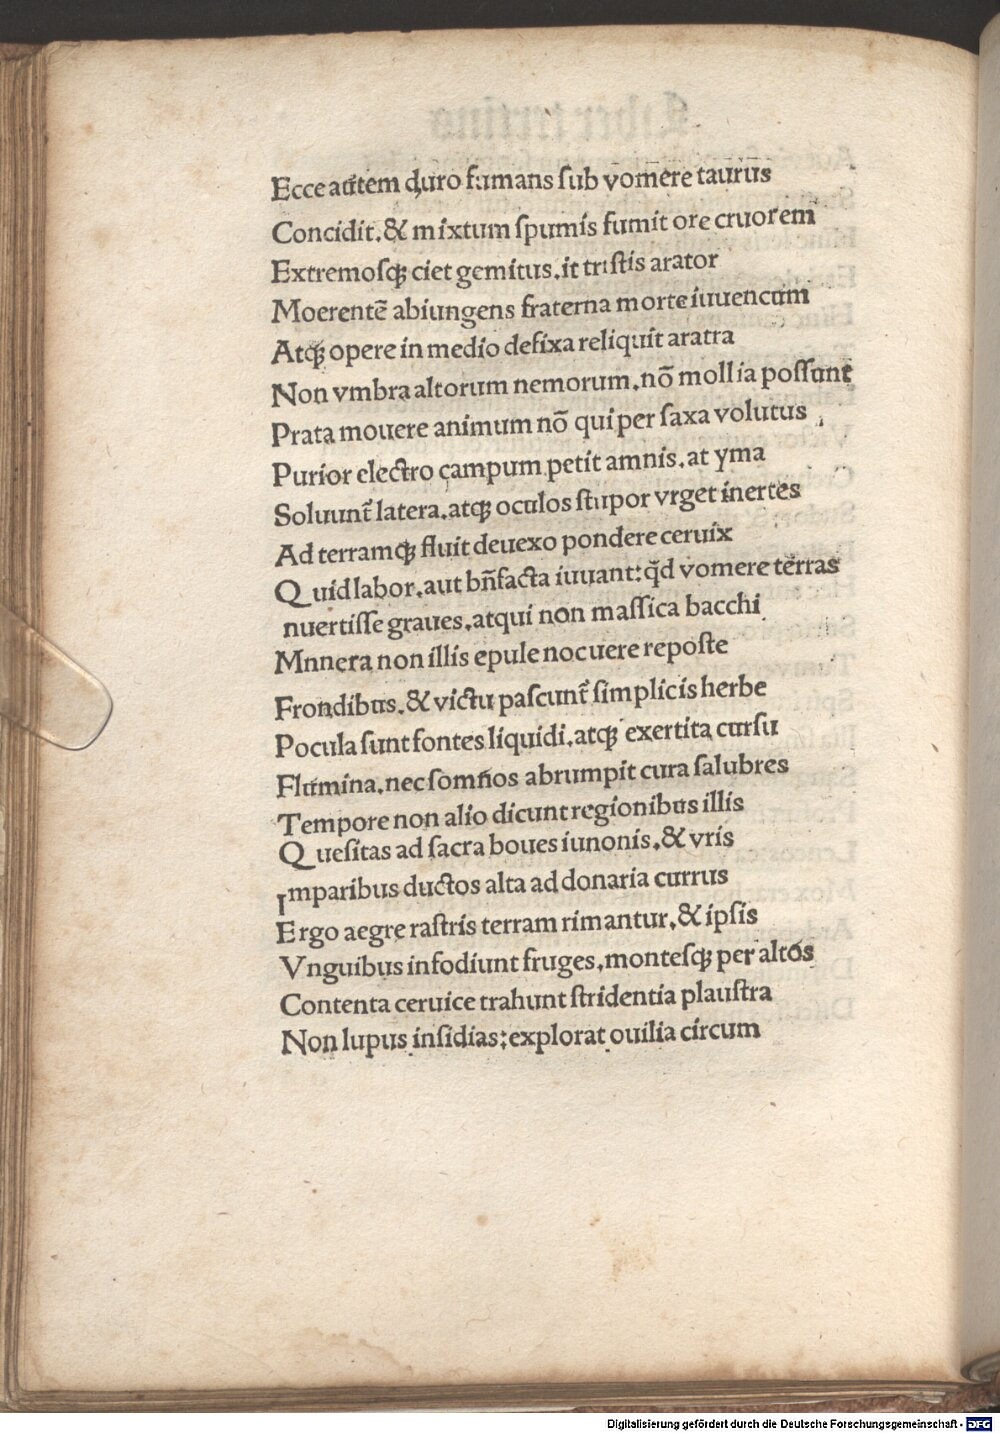 Ecce autem duro fumans ſub vomere taurus
Concidit.& mixtum ſpumis fumit ore cruorem
Extremoſqꝫ ciet gemitus.it triſtis arator
Moerentē abiungens fraterna morte iuuencum
Atqꝫ opere in medio defixa reliquit aratra
Non vmbra altorum nemorum.nō mollia poſſunt
Prata mouere animum nō qui per ſaxa volutus
Purior electro campum petit amnis.at yma
Soluunt̃ latera.atqꝫ oculos ſtupor vrget inertes
Ad terramqꝫ fluit deuexo pondere ceruix
Quid labor.aut bn̄facta iuuant:qd̄ vomere terras
nuertiſſe graues.atqui non maſſica bacchi
Mnnera non illis epule nocuere repoſte
Frondibus.& victu paſcunt̃ ſimplicis herbe
Pocula ſunt fontes liquidi.atqꝫ exertita curſu
Flumina.nec ſomn̄os abrumpit cura ſalubres
Tempore non alio dicunt regionibus illis
Queſitas ad ſacra boues iunonis.& vris
Imparibus ductos alta ad donaria currus
Ergo aegre raſtris terram rimantur.& ipſis
Vnguibus infodiunt fruges.monteſqꝫ per altos
Contenta ceruice trahunt ſtridentia plauſtra
Non lupus inſidias:explorat ouilia circum
Digitalisierung gefördert durch die Deutsche Forschungsgemeinschaft - DFG